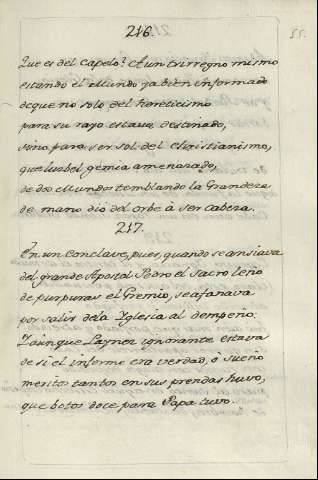 55.
216.
Que es del Capelo? A un trirregno mismo
estando el Mundo ya bien informado
deque no solo del hereticismo
para su rayo estava destinado,
sino para ser sol del Christianismo,
que luzbel gemia amenazado,
de dos Mundos temblando la Grandeza
de mano dio del orbe â ser cabeza.
217.
En un Conclave, pues, quando se ansiava
del grande Apostol Pedro el Sacro leño
de purpuras el Gremio, se afanava
por salir dela Yglesia al dempeño:
Y aunque Laynez ignorante estava
de si el informe era verdad, ô sueño
meritos tantos en sus prendas huvo,
que botos doce para Papa tuvo.